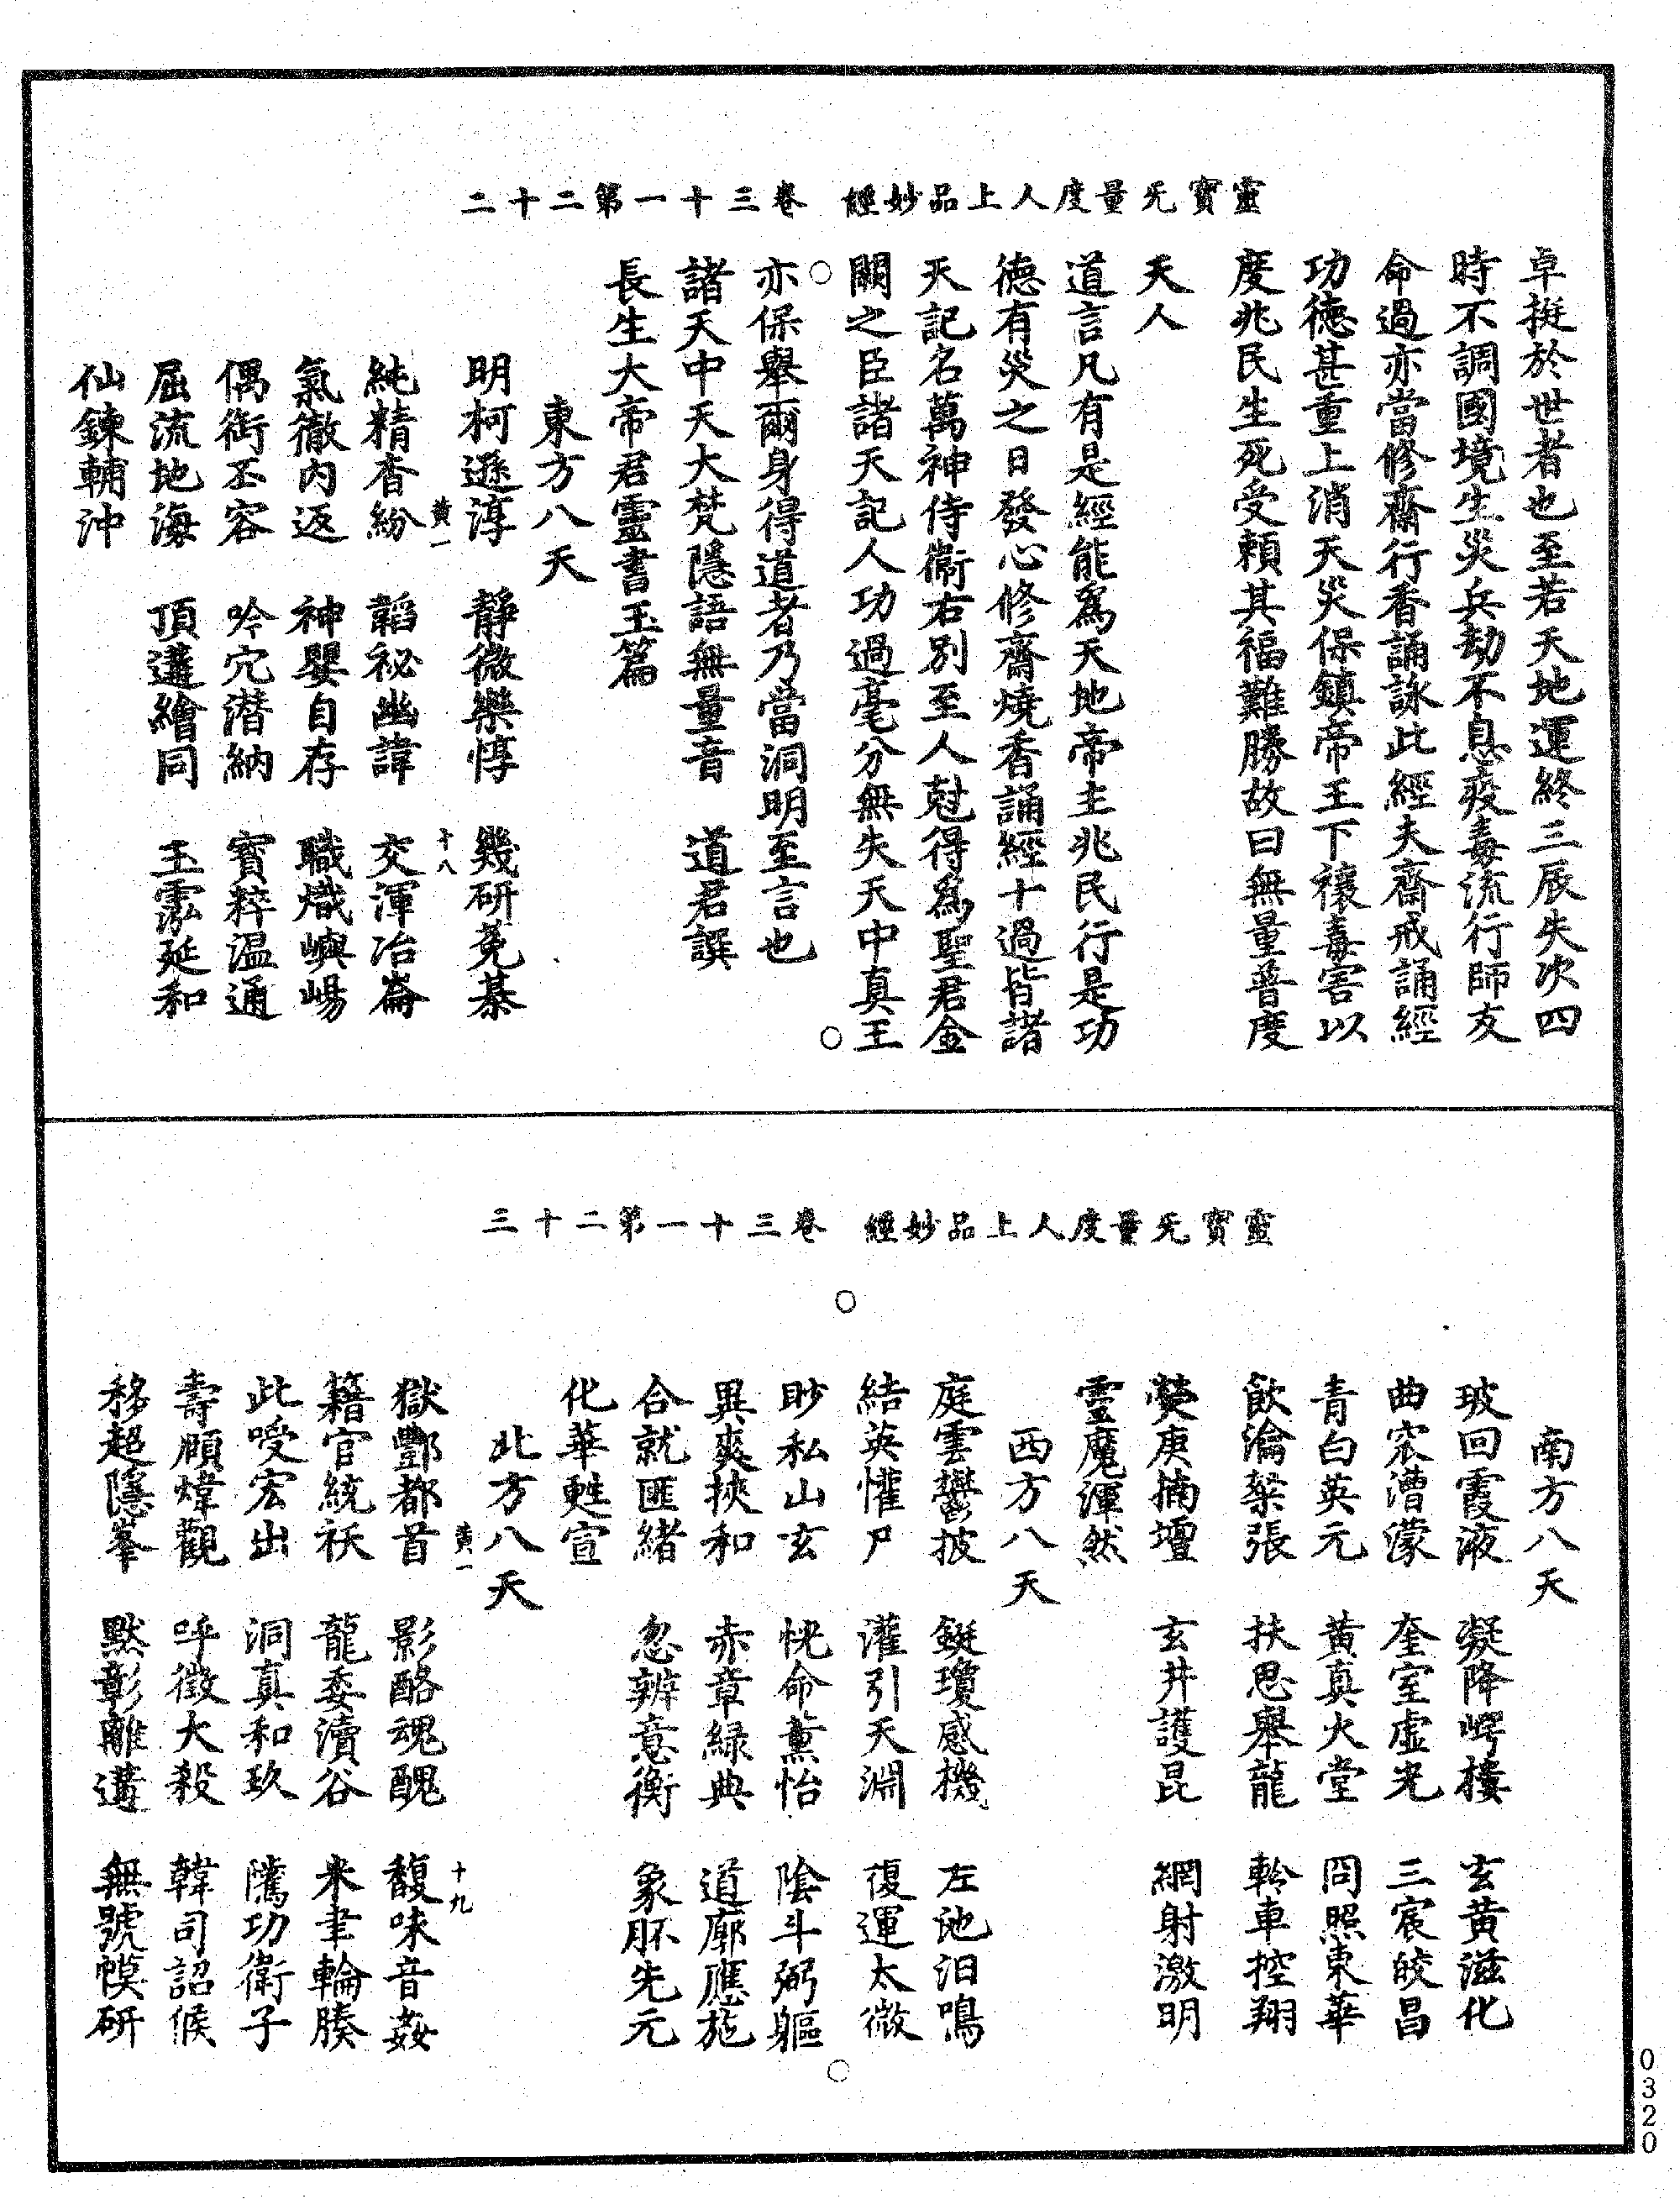 靈寶无量度人上品妙經 卷三十一第二十二
卓挺於世者也至若天地運終三辰失次四
時不調國境生災兵劫不息疫毒流行師友
命過亦當修齋行香誦詠此經夫齋戒誦經
功德甚重上消天災保鎮帝王下禳毒害以
度兆民生死受賴其福難勝故曰無量普度
天人
道言凡有是經能為天地帝主兆民行是功
德有災之日發心修齋燒香誦經十過皆諸
天記名萬神侍衛右別至人尅得為聖君金
闕之臣諸天記人功過毫分無失天中真王
亦保舉爾身得道者乃當洞明至言也
諸天中天大梵隱語無量音 道君譔
長生大帝君靈書玉篇
東方八天
明柯遜淳 靜微樂惇 幾研堯棊
黃一 十八
純精杳紛 韜祕幽諱 交渾冶崙
氣徹內返 神嬰自存 職熾嶼崵
偶衒丕容 吟穴潛納 寶粹溫通
屈流地海 頂遘繪同 玉霐延和
仙鍊輔沖
靈寶无量度人上品妙經 卷三十一第二十三
南方八天
玻回霞液 凝降崿樓 玄黃滋化
曲漕濛 奎室虛光 三宸皎昌
青白英元 黃真火堂 同照東華
飲淪桀張 扶思舉龍 軨車控翔
熒庚摛壇 玄井護昆 網射激明
靈魔渾然
西方八天
庭雲鬱披 鋌瓊感機 左池汨鳴
結英懽尸 灌引天淵 復運太微
眇私山玄 恍命薰怡 陰斗弼軀
異爽挾和 赤章綠典 道廓應施
合就匪緒 忽辨意衡 象胚先元
化華甦宣
北方八天
黃一 十九
獄酆都首 影酪魂醜 馥味音姦
籍官統祆 龍委瀆谷 米聿輪腠
此嗳宏出 洞真和玖 騰功衛子
壽頎煒觀 呼徵大殺 韓司詔候
移超隱峯 默彰離遘 無號幙研
0320